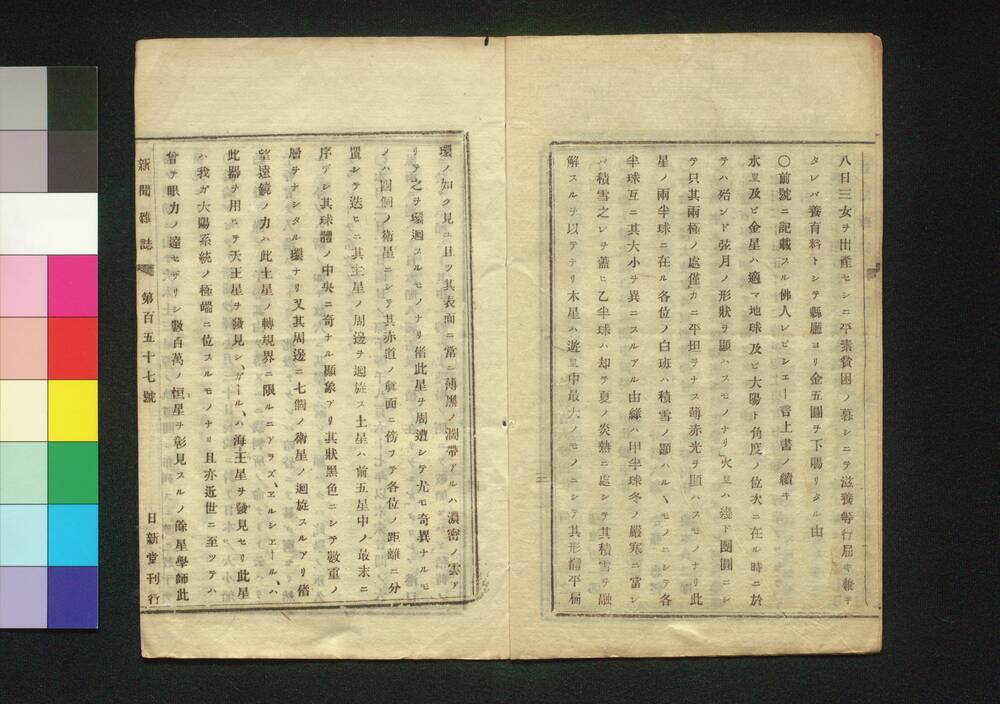 八日三女ヲ出產セシニ平素貧困ノ暮シニテ滋養等行屆キ難キ
タレバ養育料トシテ縣廳ヨリ金五圓ヲ下賜リタル由
〇前號ニ記載スル佛人レピシエー音上書ノ續キ
水星及ビ金星ハ適マ地球及ビ大陽ト角度ノ位次ニ在ル時ニ於
テハ殆ンド弦月ノ形狀ヲ顯ハスモノナリ」火星ハ幾ド團圓ニシ
テ只其兩極ノ處僅カニ平坦ヲナス薄赤光ヲ顯ハスモノナリ此
星ノ兩半球ニ在ル各位ノ白班ハ積雪ノ顯ハルヽモノニシテ各
半球互ニ其大小ヲ異ニスルアル由緣ハ甲半球冬ノ嚴寒ニ當レ
バ積雪之レヲ蓋ヒ乙半球ハ却テ夏ノ炎熱ニ處シテ其積雪ヲ融
解スルヲ以テナリ木星ハ遊星中最大ノモノニシテ其形扁平扁
環ノ如ク見ユ且ツ其表面ニ常ニ薄黑ノ濶帶アルハ濃密ノ雲ア
リテ之ヲ環迴スルモノナリ偖此星ヲ周遭シテ尤モ奇異ナルモ
ノハ四個ノ衛星ニシテ其赤道ノ眞面ニ傍フテ各位ノ距離ニ分
置シテ迭ヒニ其主星ノ周邊ヲ迴旋ス土星ハ前五星中ノ最末ニ
序デシ其球體ノ中央ニ奇ナル顯象アリ其狀黑色ニシテ數重ノ
層ヲナシタル環ナリ又其周邊ニ七個ノ衛星ノ迴旋スルアリ偖
望遠鏡ノ力ハ此土星ノ轉規界ニ限ルニアラズ、ヱルシエール、ハ
此器ヲ用ヒテ天王星ヲ發見シ、ガール、ハ海王星ヲ發見セリ此星
ハ我ガ大陽系統ノ極端ニ位スルモノナリ且亦近世ニ至ツテハ
曾テ眼力ノ達セザリシ數百萬ノ恒星ヲ彰見スルノ餘星學師此
新聞雜誌 第百五十七號 日新堂刊行